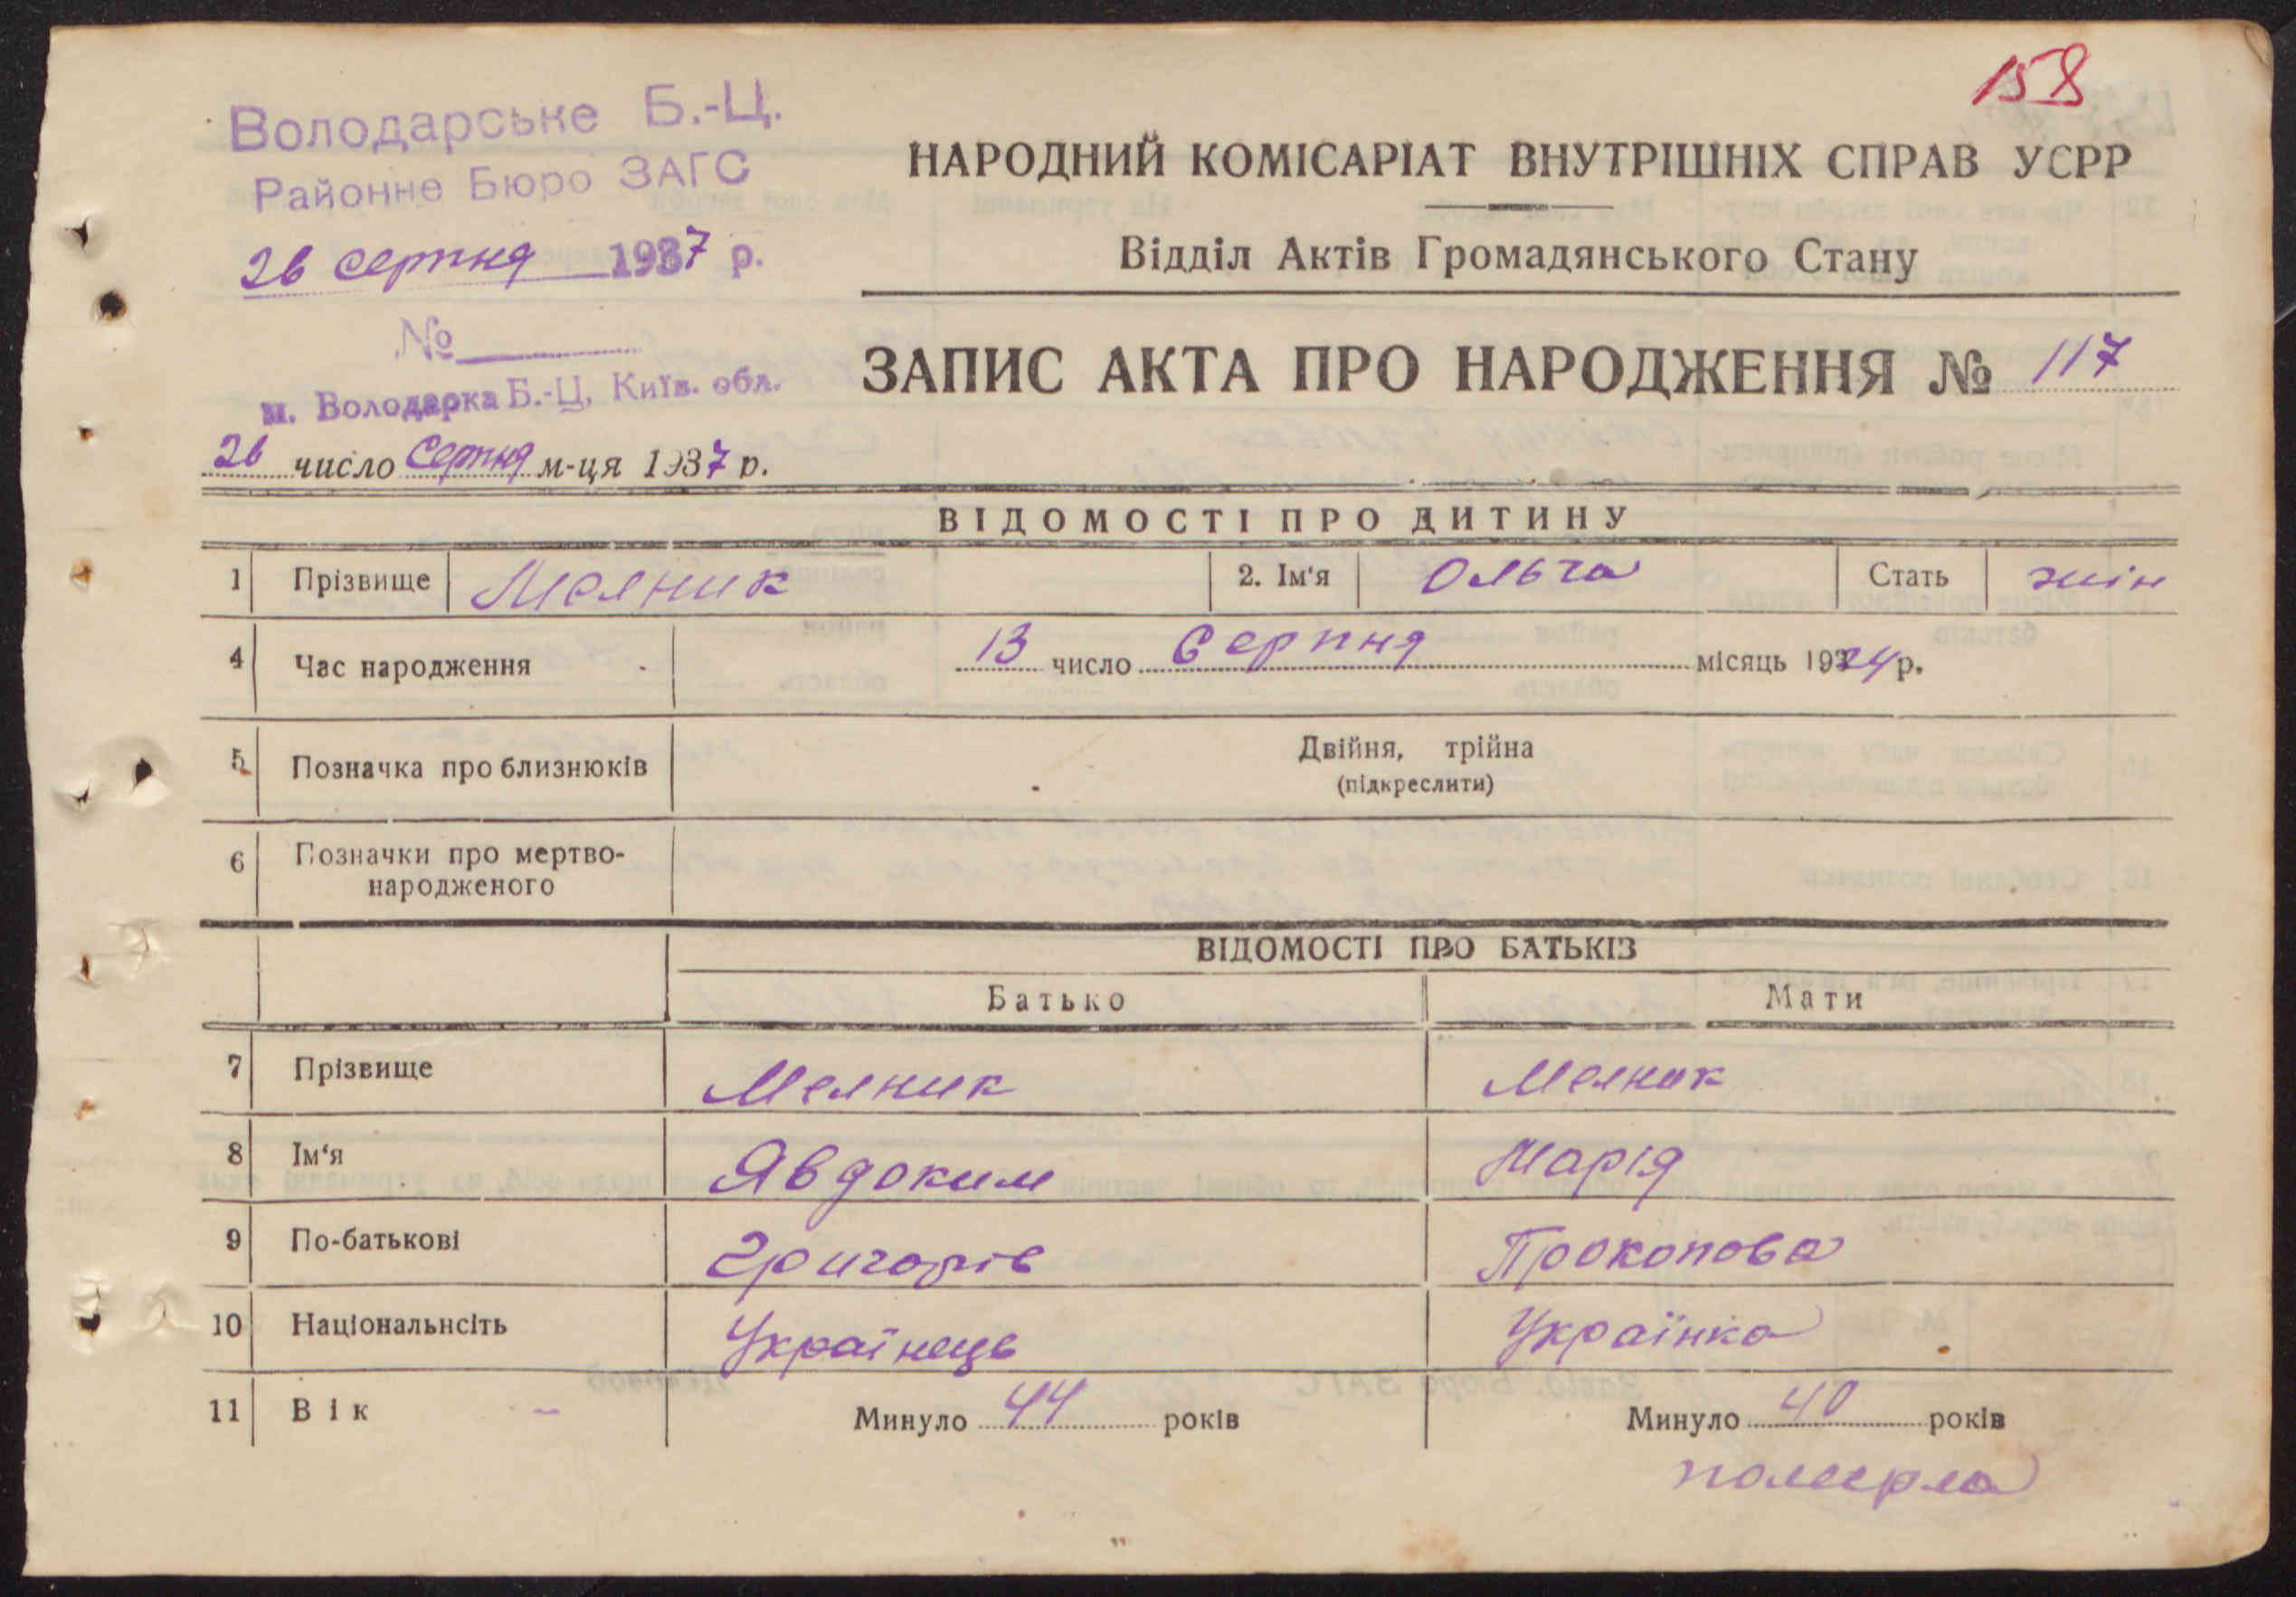 158
Володарське Б.-Ц.
Районне Бюро ЗАГС
26 серпня 1937 р.
№
м. Володарка Б.-Ц, Київ. обл.
26 число Серпня м-ця 1937 р.
НАРОДНИЙ КОМІСАРІАТ ВНУТРІШНІХ СПРАВ УСРР
Відділ Актів Громадянського Стану
ЗАПИС АКТА ПРО НАРОДЖЕННЯ № 117
ВІДОМОСТІ ПРО ДИТИНУ
1 Прізвище Мелник 2. Ім'я Ольга Стать жін
4 Час народження 13 число Серпня місяць 1924 р.
5 Позначка про близнюків Двійня, трійна
(підкреслити)
6 Позначки про мертво-
народженого
ВІДОМОСТІ ПРО БАТЬКІВ
Батько Мати
7 Прізвище Мелник Мелник
8 Ім'я Явдоким Марія
9 По-батькові Григорів Прокопова
10 Національнсіть Українець Українка
11 Вік Минуло 44 років Минуло 40 років
померла